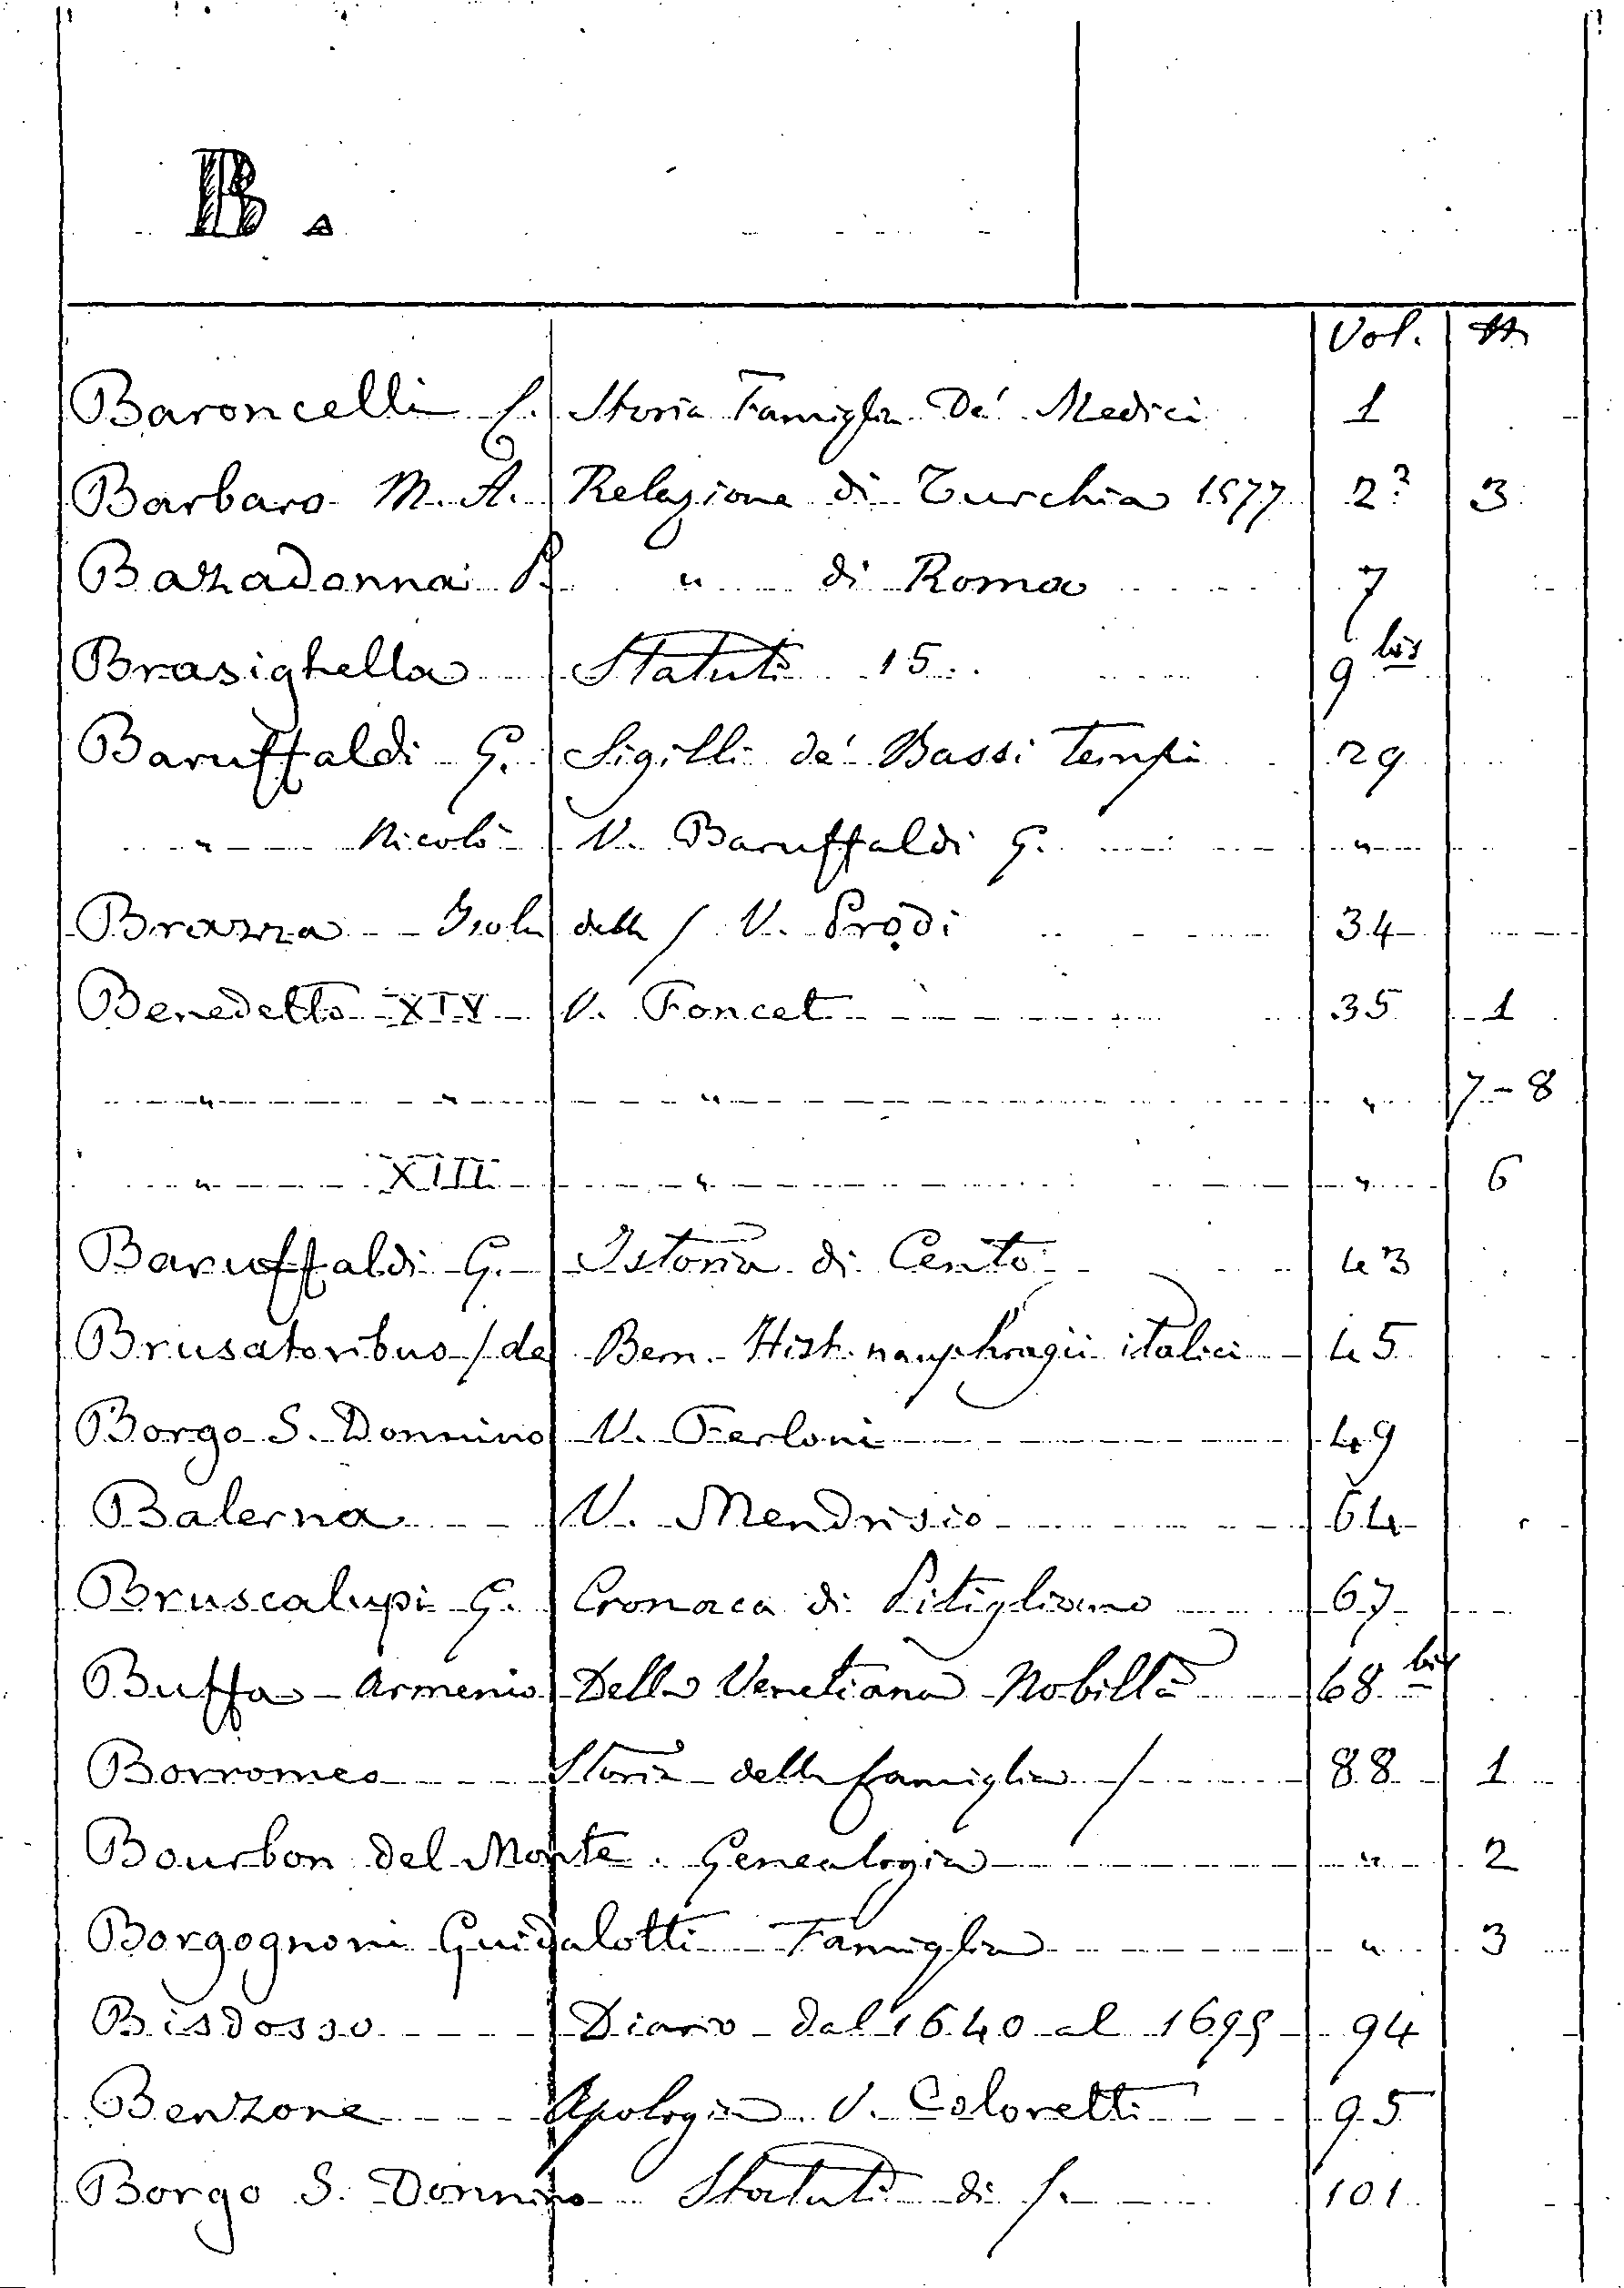 B.
Vol. №
Baroncelli C. Storia Famiglia De' Medici 1
Barbaro M. A. Relazione di Turchia 1577 2² 3
Bazadonna P. " di Roma 7
Brasighella Statuti 15.. 9 bis
Baruffaldi G. Sigilli de' Bassi Tempi 29
" Nicolò V. Baruffaldi G. "
Brazza Isola della / V. Prodi 34
Benedetto XIV V. Foncet 35 1
" " " " 7-8
" XIII " " 6
Baruffaldi G. Istoria di Cento 43
Brusatoribus / de Bern. Hist. nauphragii italici 45
Borgo S. Donnino V. Ferloni 49
Balerna V. Mendrisio 64
Bruscalupi G. Cronaca di Pitigliano 67
Buffa Armenio Della Venetiana Nobilta 68 bis
Borromeo Storia della famiglia / 88 1
Bourbon del Monte. Genealogia " 2
Borgognoni Guidalotti Famiglia " 3
Bisdosso Diario dal 1640 al 1695 94
Benzone Apologia V. Coloretti 95
Borgo S. Donnino Statuti di /. 101